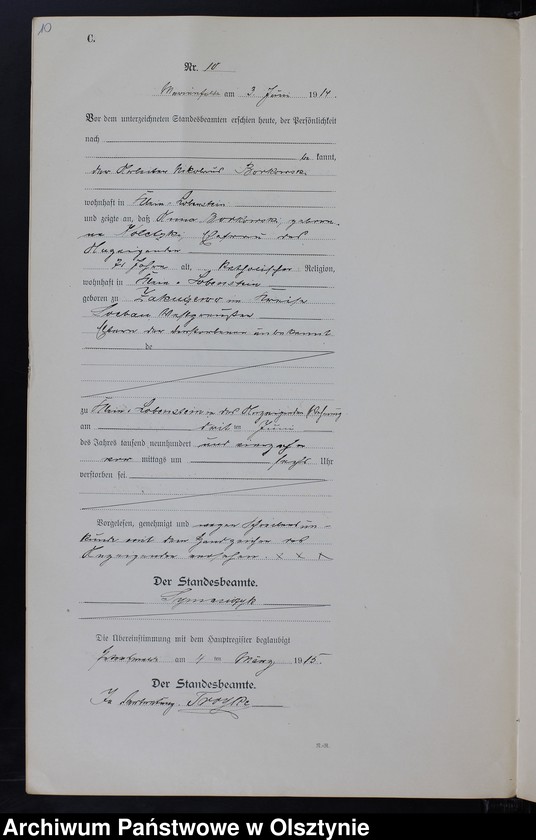 10
C.
Nr. 10
Marienfelde am 3. Juni 1914.
Vor dem unterzeichneten Standesbeamten erschien heute, der Persönlichkeit
nach
be kannt,
der Arbeiter Nikolaus Borkowski
wohnhaft in Klein-Lobenstein
und zeigte an, daß Anna Borkowski, gebore-
ne Ehefrau des
Anzeigenden
71 Jahre alt, katholischer Religion,
wohnhaft in Klein-Lobenstein
geboren zu im Kreise
Loebau Westpreußen
Eltern der Verstorbenen unbekannt
de
zu Klein-Lobenstein in des Anzeigenden Wohnung
am dritten Juni
des Jahres tausend neunhundert und vierzehn
vor mittags um sechs Uhr
verstorben sei.
Vorgelesen, genehmigt und wegen Schreibensun-
kunde mit dem Handzeichen des
Anzeigenden versehen. x x x
Der Standesbeamte.
Symanzyk
Die Übereinstimmung mit dem Hauptregister beglaubigt
am 4 ten März 1915.
Der Standesbeamte.
In Vertretung.
Archiwum Państwowe w Olsztynie